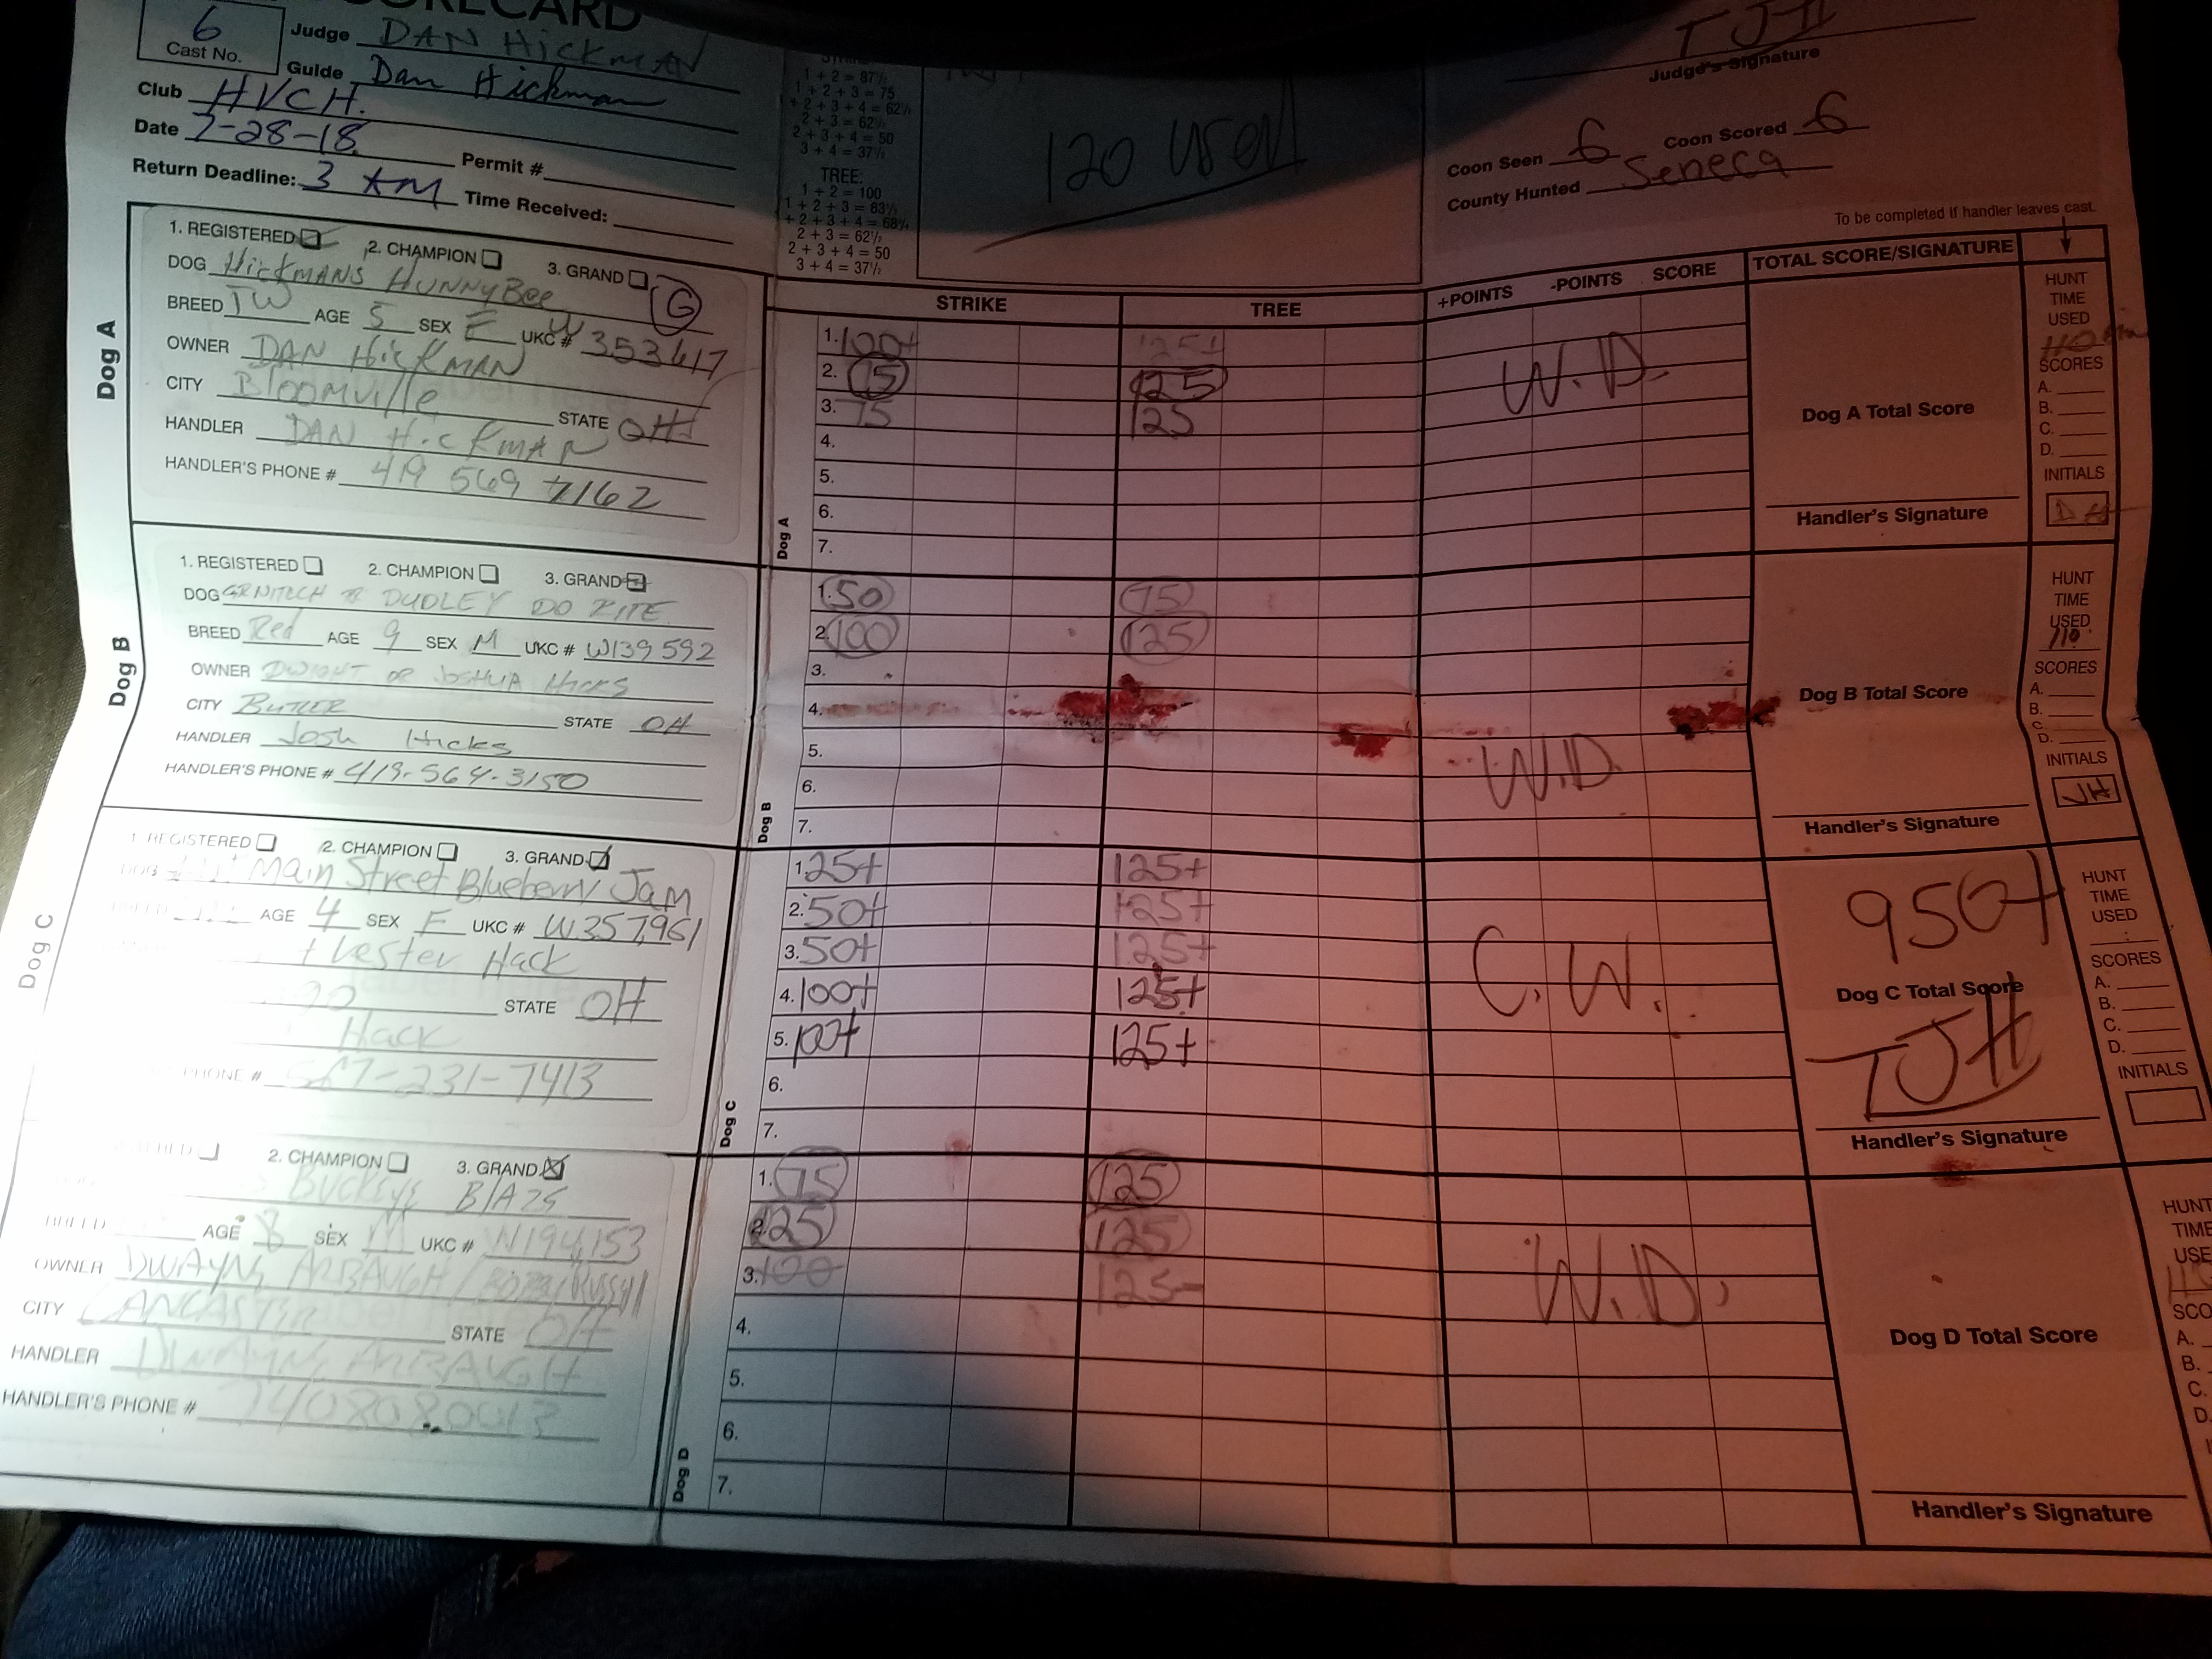 SCORECARD
6
Cast No.
Judge DAN HickMAN
Guide Dan Hickman
Club HVCH.
Date 7-28-18
Permit #
Return Deadline: 3 AM Time Received:
1 + 2 = 87½
1 + 2 + 3 = 75
+ 2 + 3 + 4 = 62½
2 + 3 = 62½
2 + 3 + 4 = 50
3 + 4 = 37½
TREE:
1 + 2 = 100
1 + 2 + 3 = 83½
+ 2 + 3 + 4 = 68¾
2 + 3 = 62½
2 + 3 + 4 = 50
3 + 4 = 37½
120 used
TJH
Judge's Signature
Coon Seen 6 Coon Scored 6
County Hunted Seneca
To be completed if handler leaves cast.
STRIKE TREE +POINTS -POINTS SCORE TOTAL SCORE/SIGNATURE
Dog A
1. REGISTERED 2. CHAMPION 3. GRAND G
DOG HickMANS HUNNYBee
BREED TW AGE 5 SEX F UKC # W 353617
OWNER DAN HickMAN
CITY Bloomville STATE OH
HANDLER DAN HickMAN
HANDLER'S PHONE # 419 569 7162
Dog A
1. 100+ 125+
2. 75 125
3. 75 125
4.
5.
6.
7.
W.D.
Dog A Total Score
Handler's Signature
HUNT
TIME
USED
110
SCORES
A.
B.
C.
D.
INITIALS
DH
Dog B
1. REGISTERED 2. CHAMPION 3. GRAND
DOG DUDLEY DO RITE
BREED Red AGE 9 SEX M UKC # W139592
OWNER DWIGHT or JOSHUA HICKS
CITY BUTLER STATE OH
HANDLER Josh Hicks
HANDLER'S PHONE # 419-564-3150
Dog B
1. 50 75
2. 100 125
3.
4.
5.
6.
7.
W.D.
Dog B Total Score
Handler's Signature
HUNT
TIME
USED
110
SCORES
A.
B.
C.
D.
INITIALS
JH
Dog C
1. REGISTERED 2. CHAMPION 3. GRAND
Main Street Blueberry Jam
AGE 4 SEX F UKC # W357,961
+ Lester Hack
STATE OH
Hack
PHONE # 567-231-7413
Dog C
1. 25+ 125+
2. 50+ 125+
3. 50+ 125+
4. 100+ 125+
5. 100+ 125+
6.
7.
C.W.
950+
Dog C Total Score
TJH
Handler's Signature
HUNT
TIME
USED
SCORES
A.
B.
C.
D.
INITIALS
2. CHAMPION 3. GRAND
BUCKEYE BLAZE
BREED AGE 8 SEX M UKC # W194,153
OWNER DWAYNE ARBAUGH /
CITY LANCASTER STATE OH
HANDLER DWAYNE ARBAUGH
HANDLER'S PHONE # 7408080013
Dog D
1. 75 125
2. 25 125
3. 100 125-
4.
5.
6.
7.
W.D.
Dog D Total Score
Handler's Signature
HUNT
TIME
USE
SCO
A.
B.
C.
D.